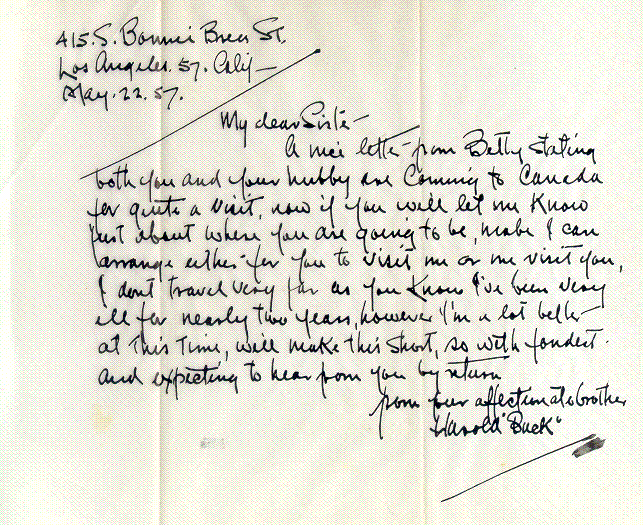 415. S. Bonnie Brea St.
Los Angeles. 57. Calif—
May. 22. 57.
My dear Sister—
A nice letter from Betty stating
both you and your hubby are Coming to Canada
for quite a visit, now if you will let me Know
just about where you are going to be, mabe I can
arrange either for you to visit me or me visit you,
I dont travel very far as you Know I've been very
ill for nearly two years, however I'm a lot better—
at This Time, will make this short, so with fondest.
and expecting to hear from you by return
from your affectionate brother
Harold "Buck"